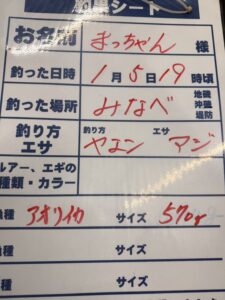 シート
お名前 まっちゃん 様
釣った日時 1月5日19時頃
釣った場所 みなべ 地磯 沖磯 堤防
釣り方 エサ 釣り方 ヤエン エサ アジ
ルアー、エギの種類・カラー
魚種 アオリイカ サイズ 570g
魚種 サイズ
魚種 サイズ